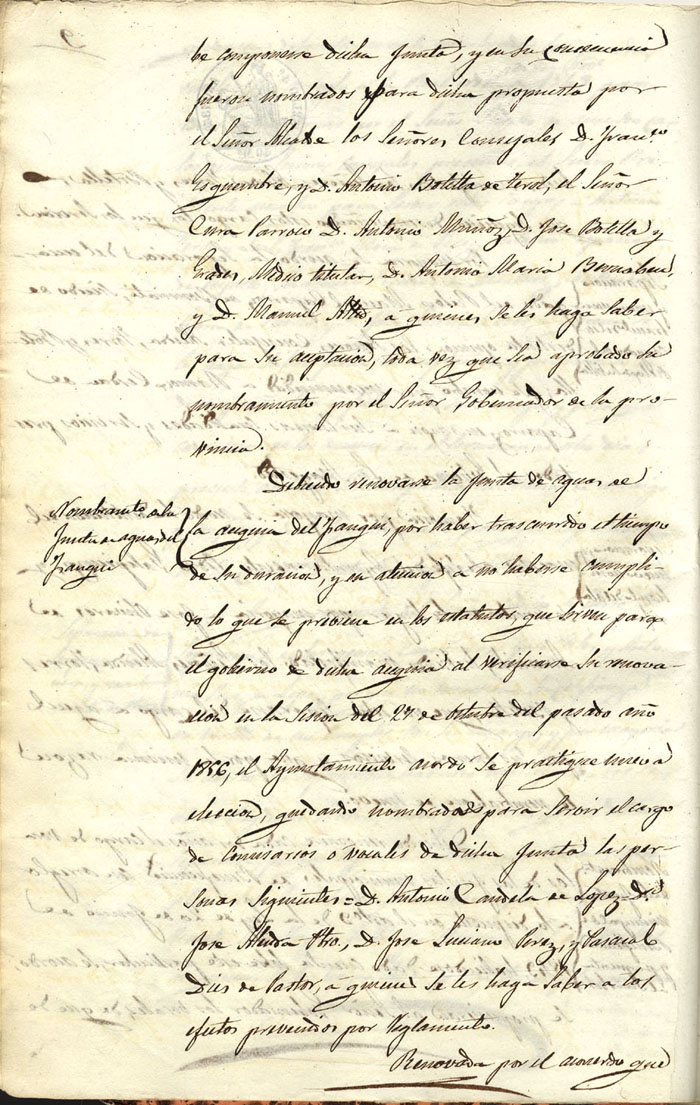 be componerse dicha Junta, y en su consecuencia
fueron nombrados para dicha propuesta por
el Señor Alcalde los Señores Concejales D. Franco.
Esquembre, y D. Antonio Botella de Terol, el Señor
Cura Parroco D. Antonio Muñoz, D. Jose Botella y
Grades, Medio titular, D. Antonio Maria Bernabeu,
y D. Manuel, a quienes se les haga saber
para su aceptacion, toda vez que sea aprobado su
nombramiento por el Señor Gobernador de la pro-
vincia.
Debiendo renovarse la Junta de aguas de
Nombramto. de la
Junta de aguas del
Franqui
la asequia del Franqui, por haber trascurrido el tiempo
de su duracion, y en atencion a no haberse cumpli-
do lo que se previene en los estatutos, que sirven para
el gobierno de dicha asequia al verificarse su renova-
cion en la sesion del 27 de octubre del pasado año
1856, el Ayuntamiento acordó se practique nueva
eleccion, quedando nombrados para servir el cargo
de Comisarios o vocales de dicha Junta las per-
sonas siguientes = D. Antonio Candela de Lopez = D.
Jose Pbro., D. Jose Luciano Perez, y Pascual
Dies de Pastor, a quienes se les haga saber a los
efectos prevenidos por Reglamento.
Renovada por el acuerdo que